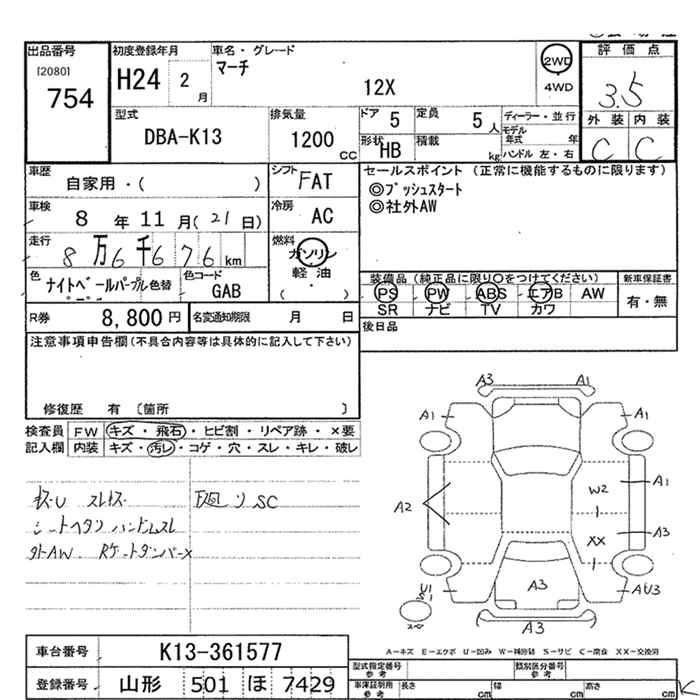 出品番号
[2080]
754
初度登録年月
H24 2 月
車名・グレード
マーチ
12X
2WD
4WD
評価点
3.5
外装 内装
C C
型式
DBA-K13
排気量
1200 cc
ドア 5
定員 5 人
形状 HB
積載 kg
ディーラー・並行
モデル年式 年
ハンドル 左・右
車歴
自家用・( )
シフト FAT
車検
8 年 11 月 (21日)
冷房 AC
走行
8万6千676 km
燃料
ガソリン
軽油
( ・ )
色
ナイトベールパープル色替
色コード
GAB
セールスポイント (正常に機能するものに限ります)
◎プッシュスタート
◎社外AW
装備品 (純正品に限り○をつけてください)
PS PW ABS エアB AW
SR ナビ TV カワ
新車保証書
有・無
R券 8,800 円
名変通知期限 月 日
後日品
注意事項申告欄(不具合内容等は具体的に記入して下さい)
修復歴 有 〔箇所 〕
検査員記入欄
FW キズ・飛石・ヒビ割・リペア跡・×要
内装 キズ・汚レ・コゲ・穴・スレ・キレ・破レ
シートヘタリ ハンドルスレ
外AW
A3 A1
A1 A1
A2
W2
A1
XX
A3
A3
U1
S1
AU3
A3
A-キズ E-エクボ U-凹み W-補修跡 S-サビ C-腐食 XX-交換済
車台番号 K13-361577
登録番号 山形 501 ほ 7429
型式指定番号 参考
類別区分番号 参考
車庫証明用 参考
長さ cm
幅 cm
高さ cm